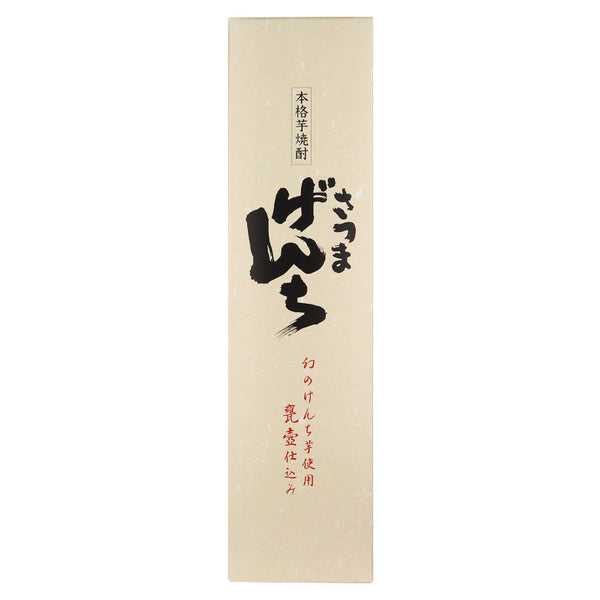 本格芋焼酎
さつま
げんち
幻のけんち芋使用
甕壺仕込み